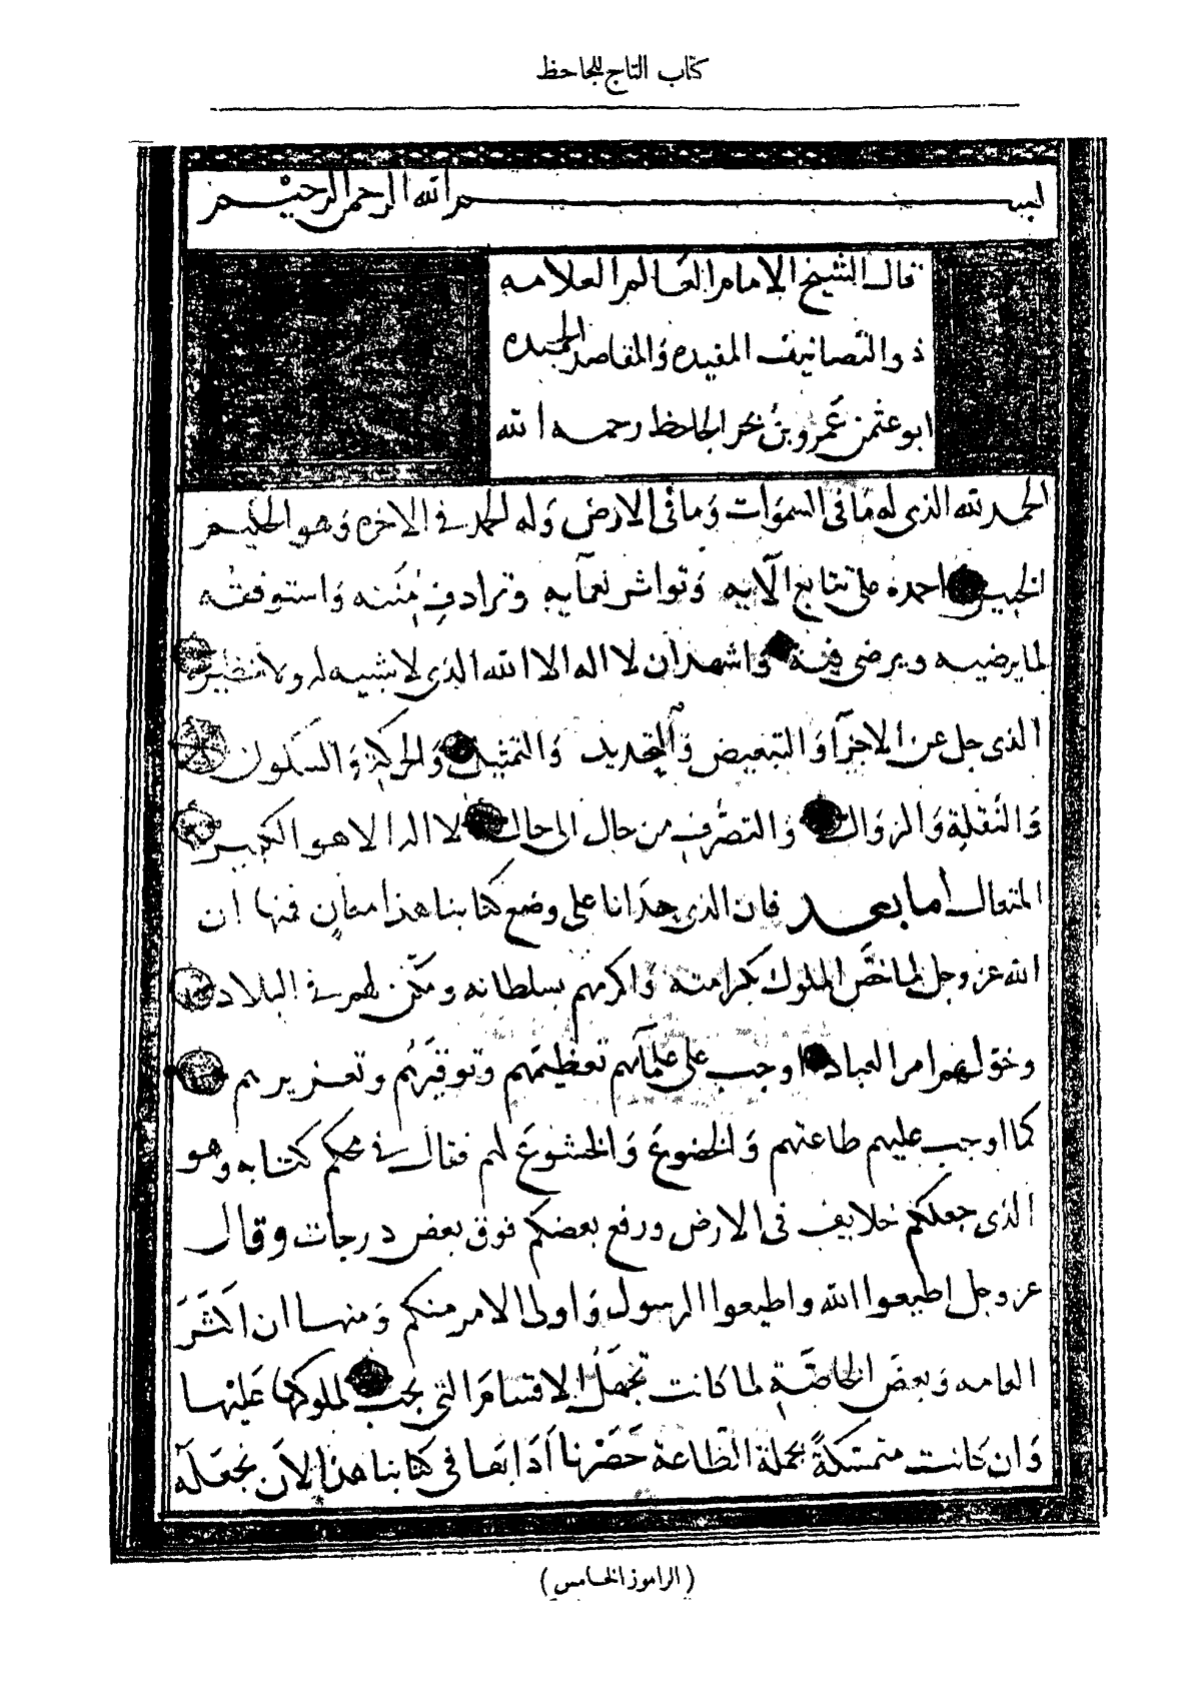 كتاب التاج للجاحظ
بسم الله الرحمن الرحيم
قال الشيخ الامام العالم العلامه
ذو التصانيف المفيده وَالمقاصد الحميده
ابو عثمن عَمرو بنُ بحر الجاحظ رحمه الله
الحمد لله الذى له مَا فى السموَات وَمَا فى الارض وَله الحمد فى الاخره وَهو الحكيم
الخبير احمده على تتابع آلآيه وَتواتر نعمآيه وترادف مننه وَاستوفقه
لما يرضيه ويرضى فيه وَاشهد ان لا اله الا الله الذى لا شبيه له ولا نظير
الذى جل عن الاجزآ وَالتبعيض وَالتحديد وَالتمثيل وَالحركة وَالسكون
وَالنُّقلةِ وَالزوَال وَالتصرُّف من حال الى حال لا اله الا هو الكبير
المتعال اما بعد فان الذى حدَانا على وضع كتابنا هذا معانٍ فمنها ان
الله عز وجل لما خصَّ الملوك بكرامته وَاكرمهم بسلطانه ومكّن لهم فى البلاد
وخوّلهم امر العباد اوجب على علمآئهم تعظيمَهم وتوقيَرهُم وتعزيرهم
كما اوجب عليهم طاعتهم وَالخضوعَ وَالخشوعَ لهم فقال فى محكم كتابه وهو
الذى جعلكم خلايف فى الارض ورفع بعضكم فوق بعض درجات وقال
عز وجل اطيعوا الله واطيعوا الرسول وَاولى الامر منكم وَمنها ان اكثَرَ
العامه وَبعضَ الخاصّة لما كانت تجهلُ الاقسامَ التى تجب لملوكها عَليها
وَان كانت متمسّكةً بجملة الطّاعة حَصَرْنا آدَابَها فى كتابنا هذا لأن نجعَله
(الراموز الخامس)